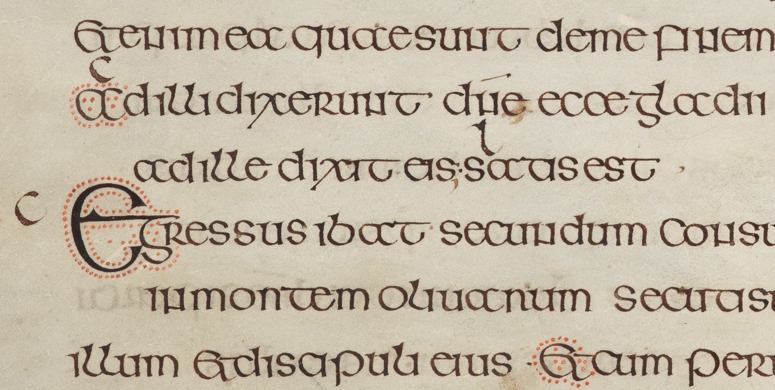 Etenim ea quae sunt deme finem
Ad illi dixerunt dn̄e ecce gladii
ad ille dixit eis· satis est
Egressus ibat secundum consu
in montem olivanum secutisu
illum et discipuli eius · Et cum perv